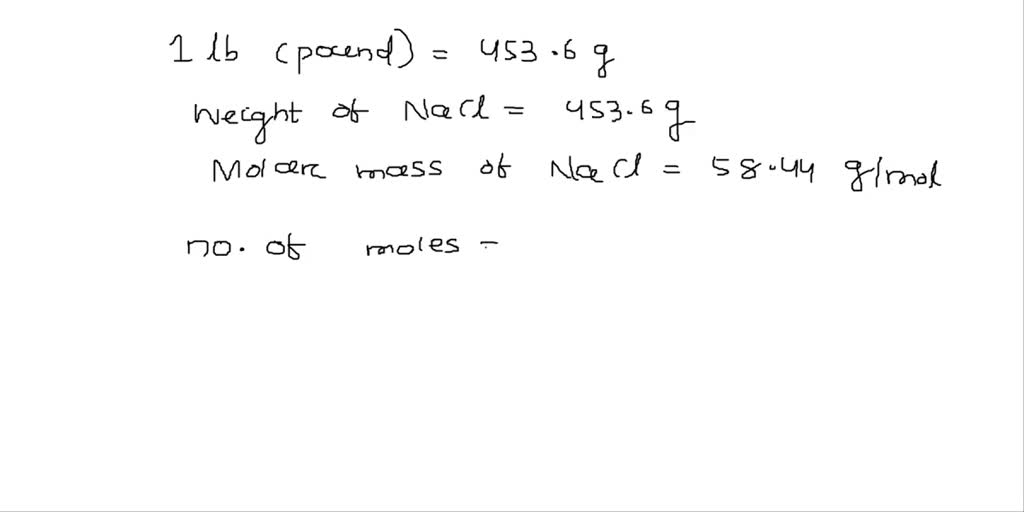 1 lb (pound) = 453.6 g
Weight of NaCl = 453.6 g
Molar mass of NaCl = 58.44 g/mol
no. of moles =